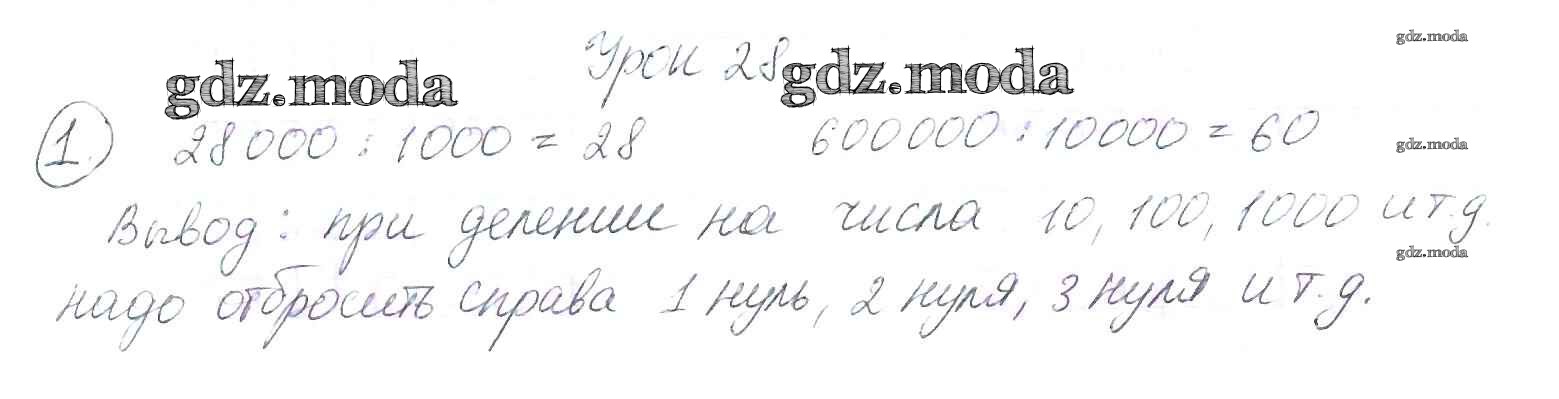 Урок 28
gdz.moda
gdz.moda gdz.moda
1. 28000 : 1000 = 28 600000 : 10000 = 60
gdz.moda
Вывод: при делении на числа 10, 100, 1000 и т.д.
gdz.moda
надо отбросить справа 1 нуль, 2 нуля, 3 нуля и т.д.